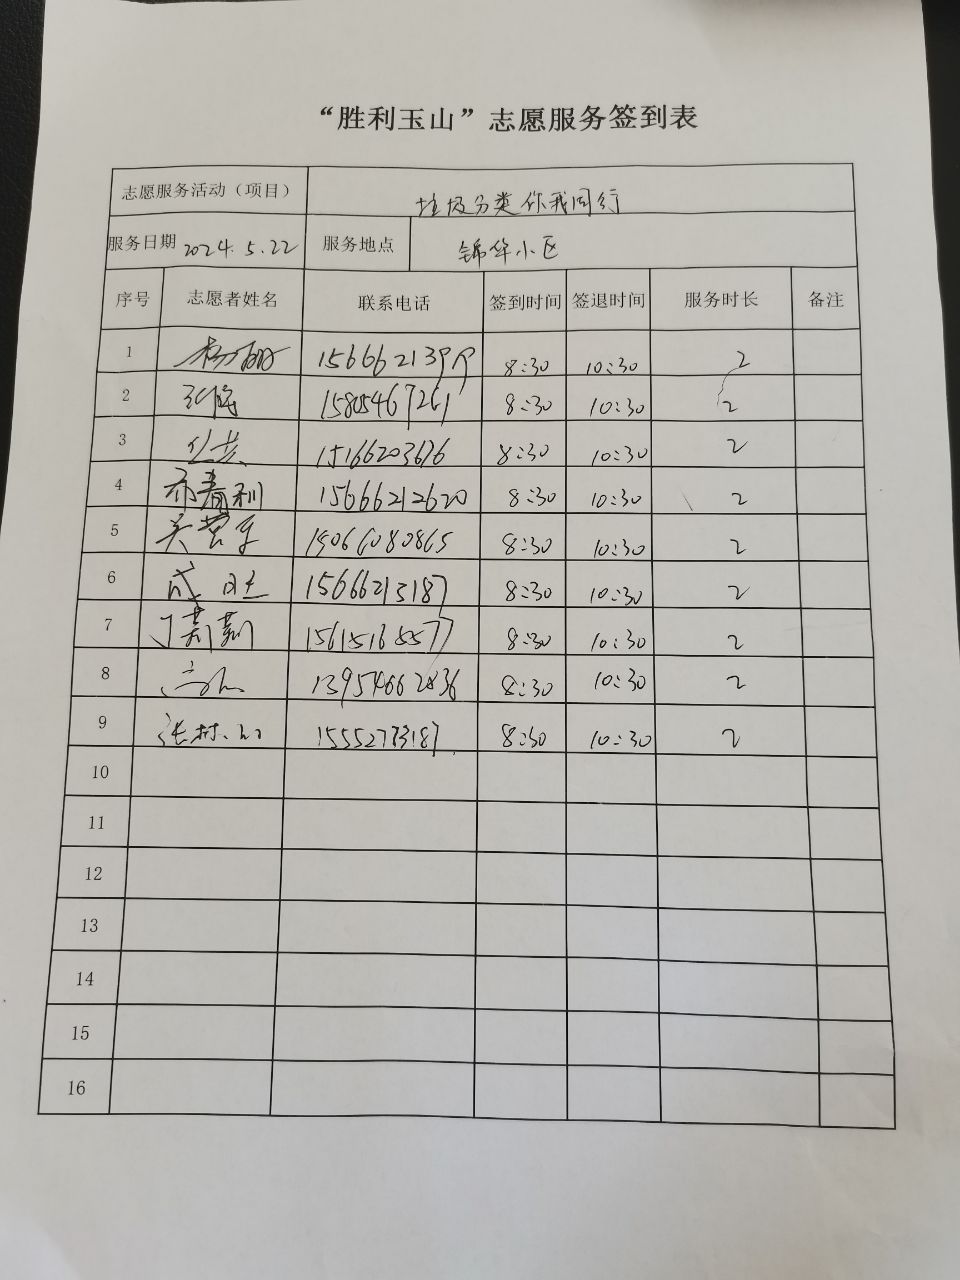 “胜利玉山”志愿服务签到表
志愿服务活动（项目） 垃圾分类你我同行
服务日期 2024.5.22 服务地点 锦华小区
序号 志愿者姓名 联系电话 签到时间 签退时间 服务时长 备注
1 8:30 10:30 2
2 15805467261 8:30 10:30 2
3 15166203676 8:30 10:30 2
4 15666212620 8:30 10:30 2
5 8:30 10:30 2
6 15666213187 8:30 10:30 2
7 丁莉莉 15615165577 8:30 10:30 2
8 13954662836 8:30 10:30 2
9 15552783187 8:30 10:30 2
10
11
12
13
14
15
16